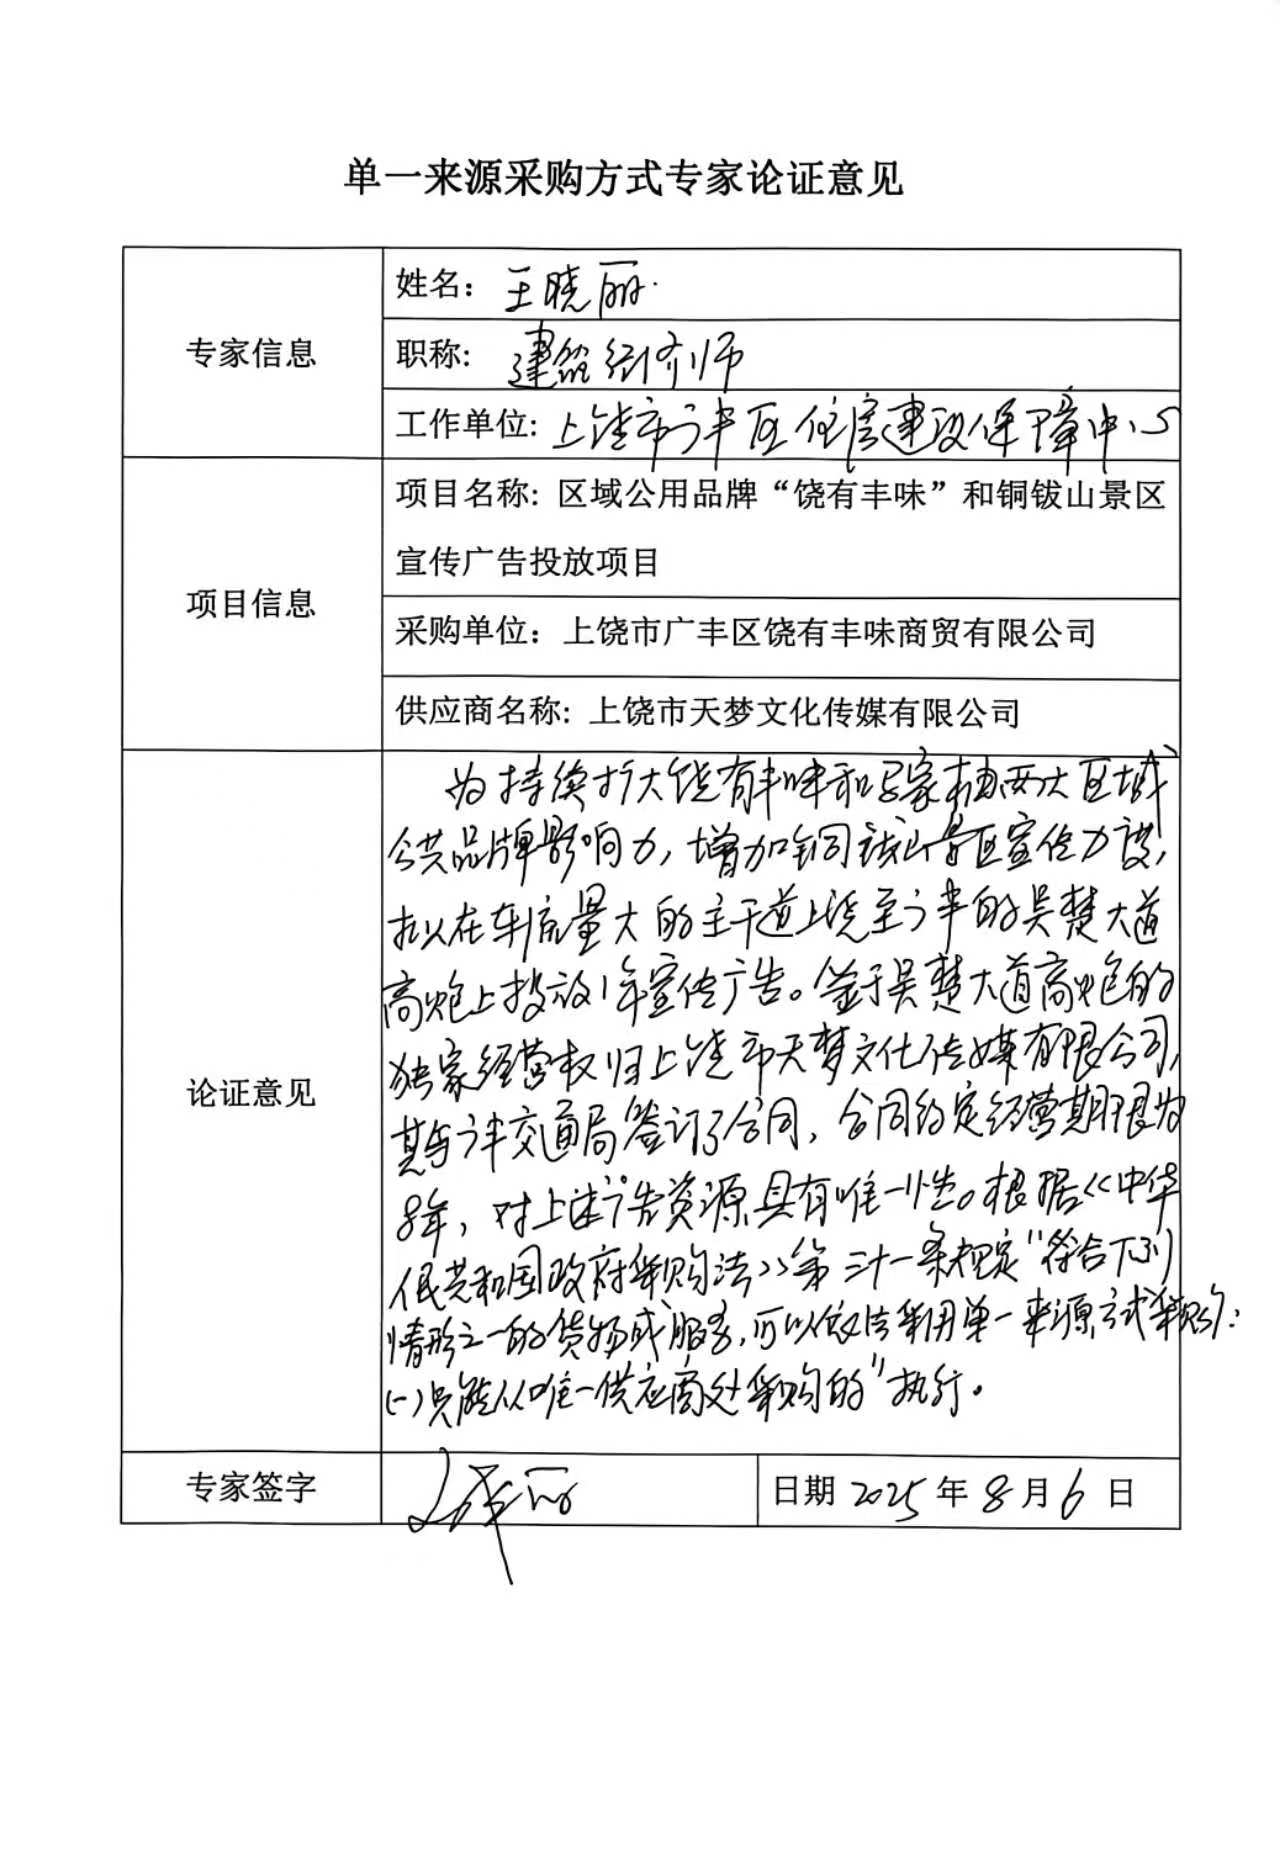 单一来源采购方式专家论证意见
专家信息
姓名：王晓丽
职称：建筑经济师
工作单位：上饶市广丰区住房建设保障中心
项目信息
项目名称：区域公用品牌“饶有丰味”和铜钹山景区
宣传广告投放项目
采购单位：上饶市广丰区饶有丰味商贸有限公司
供应商名称：上饶市天梦文化传媒有限公司
论证意见
为持续扩大饶有丰味和马家柚两大区域
公共品牌影响力，增加铜钹山景区宣传力度，
拟在车流量大的主干道上饶至广丰的吴楚大道
高炮上投放1年宣传广告。鉴于吴楚大道高炮的
独家经营权归上饶市天梦文化传媒有限公司，
其与广丰交通局签订了合同，合同约定经营期限为
8年，对上述广告资源具有唯一性。根据《中华
人民共和国政府采购法》第三十一条规定“符合下列
情形之一的货物或服务，可以依法采用单一来源方式采购：
(一)只能从唯一供应商处采购的”执行。
专家签字
王晓丽
日期 2025年8月6日